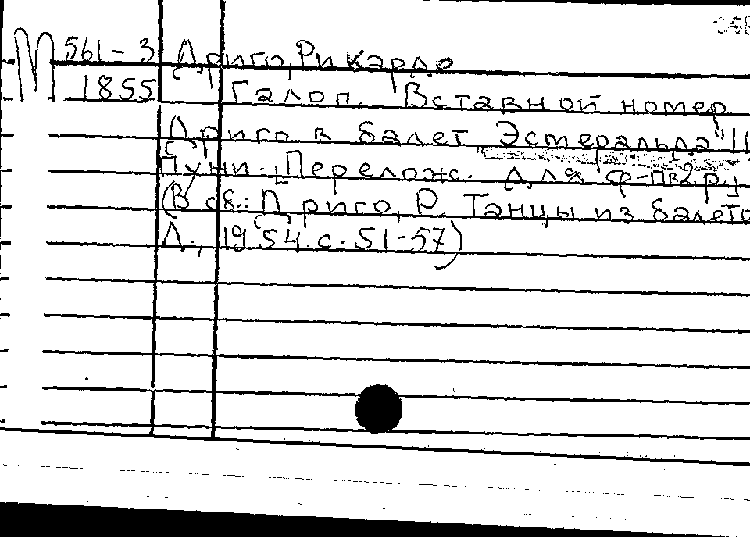 М 561-3 Дриго, Рикардо
1855 Галоп. Вставной номер
Дриго в балет Эсмеральда"
Пуни. Перелож. для ф-п в 2 р.
(В сб.: Дриго, Р. Танцы из балето
Л., 1954. с. 51-57)